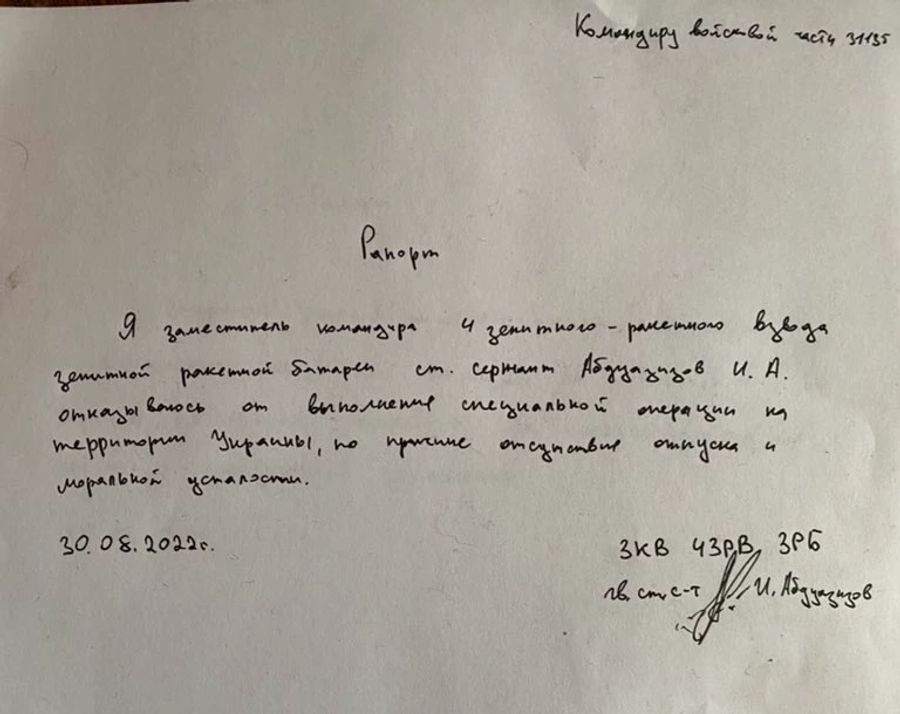 Командиру войсковой части 31135
Рапорт
Я заместитель командира 4 зенитного - ракетного взвода
зенитной ракетной батареи ст. сержант Абдуазизов И. А.
отказываюсь от выполнения специальной операции на
территории Украины, по причине отсутствия отпуска и
моральной усталости.
30.08.2022г.
ЗКВ 4ЗРВ ЗРБ
гв. ст. с-т И. Абдуазизов